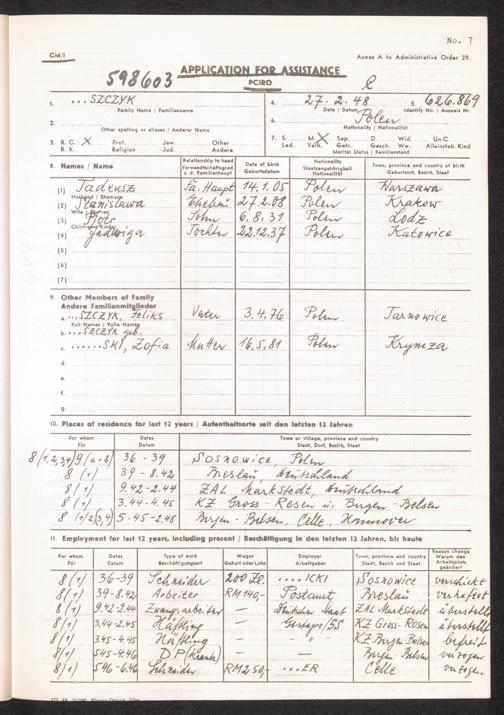 No. 7
CM/1
Annex A to Administrative Order 29.
598603
APPLICATION FOR ASSISTANCE
PCIRO
1. ...SZCZYK
Family Name / Familienname
4. 27.2.48
Date / Datum
5. 626.869
Identity No. / Ausweis Nr.
2.
Other spelling or aliases / Anderer Name
6. Polen
Nationality / Nationalität
3. R.C. X Prot. Jew. Other
R.K. Religion Jud. Andere
7. S. M. X Sep. D Wid. Un.C.
Led. Verh. Getr. Gesch. Ww. Alleinsteh. Kind
Marital Status / Familienstand
8. Names / Name
Relationship to head
Verwandtschaftsgrad
z. d. Familienhaupt
Date of birth
Geburtsdatum
Nationality
Staatsangehörigkeit
Nationalität
Town, province and country of birth
Geburtsort, Bezirk, Staat
(1) Tadeusz Fa. Haupt 14.1.05 Polen Warszawa
Husband / Ehemann
(2) Stanislawa Ehefrau 27.2.08 Polen Krakow
Wife / Ehefrau
(3) Piotr Sohn 6.8.31 Polen Lodz
Children / Kinder
(4) Jadwiga Tochter 22.12.37 Polen Katowice
(5)
(6)
(7)
9. Other Members of Family
Andere Familienmitglieder
a. ...SZCZYK, Feliks Vater 3.4.76 Polen Tarnowice
Full Names / Volle Namen
b. ...SZCZYK geb.
c. ......SKI, Zofia Mutter 16.5.81 Polen Krymza
d.
e.
f.
g
10. Places of residence for last 12 years / Aufenthaltsorte seit den letzten 12 Jahren
For whom
Für
Dates
Datum
Town or village, province and country
Stadt, Dorf, Bezirk, Staat
8 (1,2,3,4) 9 (a+b) 36-39 Sosnowice, Polen
8 (1) 39-8.42 Breslau, Deutschland
8 (1) 9.42-2.44 ZAL Markstedt, Deutschland
8 (1) 3.44-4.45 KZ Gross-Rosen u. Bergen-Belsen
8 (1,2,3,4) 5-45-2.48 Bergen-Belsen, Celle, Hannover
11. Employment for last 12 years, including present / Beschäftigung in den letzten 12 Jahren, bis heute
For whom
Für
Dates
Datum
Type of work
Beschäftigungsart
Wages
Gehalt oder Lohn
Employer
Arbeitgeber
Town, province and country
Stadt, Bezirk und Staat
Reason change
Warum den
Arbeitsplatz
geändert
8 (1) 36-39 Schneider 200 Zl. ....ICKI Sosnowice verschickt
8 (1) 39-8.42 Arbeiter RM 140,- Postamt Breslau verhaftet
8 (1) 9.42-2.44 Zwangsarbeiter — Deutscher Staat ZAL Markstedt überstellt
8 (1) 3.44-2.45 Häftling — Gestapo/SS KZ Gross-Rosen überstellt
8 (1) 3.45-4.45 Häftling — - " - KZ Bergen Belsen befreit
8 (1) 5.45-4.46 DP (krank) — — Bergen-Belsen verzogen
8 (1) 5.46-6.46 Schneider RM 250,- ...ER Celle verzogen.